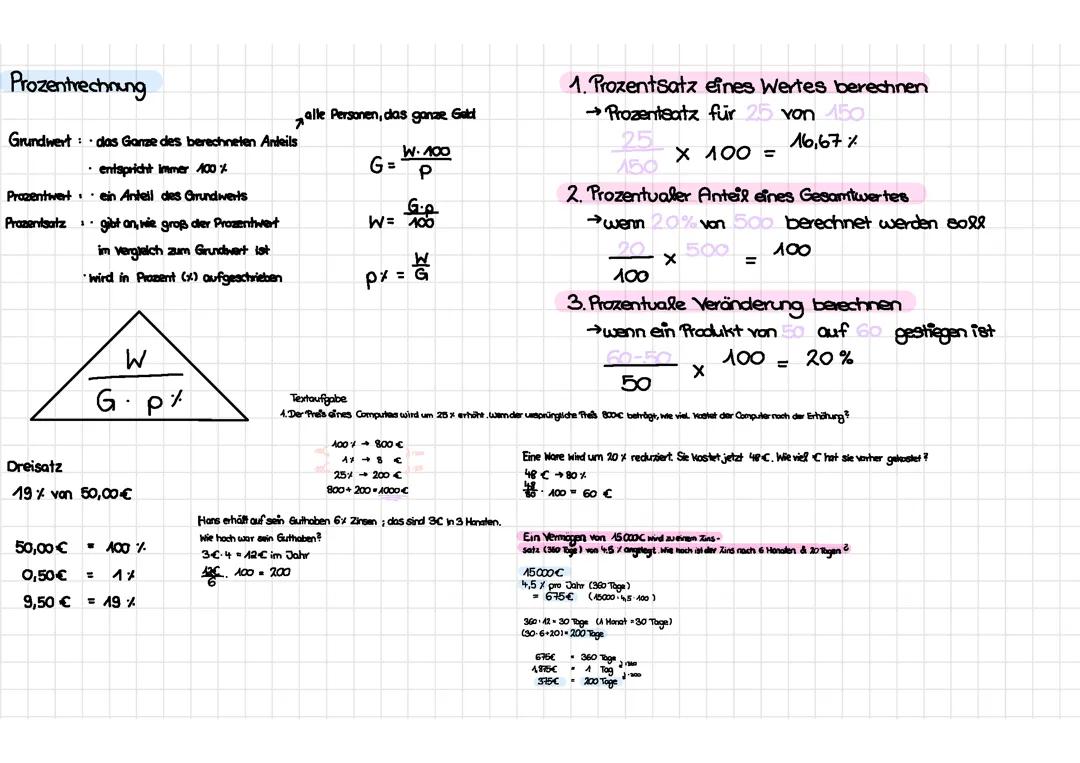 Prozentrechnung
alle Personen, das ganze Geld
Grundwert : · das Ganze des berechneten Anteils
· entspricht immer 100 %
Prozentwert : · ein Anteil des Grundwerts
Prozentsatz : · gibt an, wie groß der Prozentwert
im Vergleich zum Grundwert ist
· wird in Prozent (%) aufgeschrieben
G = W · 100 / p
W = G · p / 100
p% = W / G
W
G · p %
Dreisatz
19 % von 50,00 €
50,00 € = 100 %
0,50 € = 1 %
9,50 € = 19 %
Textaufgabe
1. Der Preis eines Computers wird um 25 % erhöht. Wenn der ursprüngliche Preis 800€ beträgt, wie viel kostet der Computer nach der Erhöhung?
100 % → 800 €
1 % → 8 €
25 % → 200 €
800 + 200 = 1000 €
Hans erhält auf sein Guthaben 6% Zinsen ; das sind 3€ in 3 Monaten.
Wie hoch war sein Guthaben?
3€ · 4 = 12€ im Jahr
12€ / 6 · 100 = 200
1. Prozentsatz eines Wertes berechnen
→ Prozentsatz für 25 von 150
25 / 150 × 100 = 16,67 %
2. Prozentualer Anteil eines Gesamtwertes
→ wenn 20% von 500 berechnet werden soll
20 / 100 × 500 = 100
3. Prozentuale Veränderung berechnen
→ wenn ein Produkt von 50 auf 60 gestiegen ist
60-50 / 50 × 100 = 20 %
Eine Ware wird um 20 % reduziert. Sie kostet jetzt 48 €. Wie viel € hat sie vorher gekostet?
48 € → 80 %
48 / 80 · 100 = 60 €
Ein Vermögen von 15000€ wird zu einem Zins-
satz (360 Tage) von 4,5 % angelegt. Wie hoch ist der Zins nach 6 Monaten & 20 Tagen?
15000€
4,5 % pro Jahr (360 Tage)
= 675€ (15000 · 4,5 · 100)
360 : 12 = 30 Tage (1 Monat = 30 Tage)
(30 · 6 + 20) = 200 Tage
675€ = 360 Tage
:360
1,875€ = 1 Tag
· 200
375€ = 200 Tage